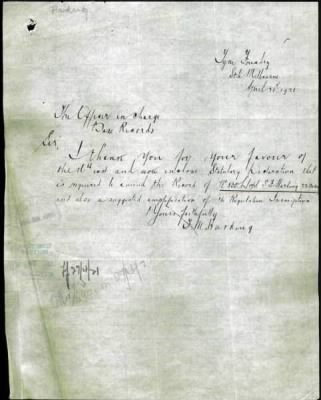 Harking
Sth Melbourne
April 26 1921
The Officer in charge
Base Records
Sir,
I thank you for your favour of
the inst and now enclose Statutory declaration that
is required to amend the Record of Harking
and also a suggested amplification of the Regulation Inscription
Yours faithfully
Harking
27/4/21